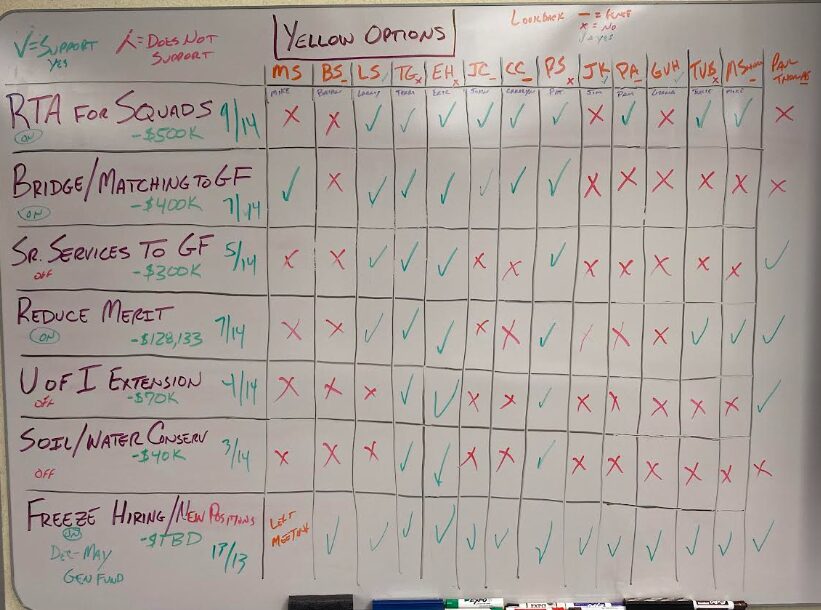 √=SUPPORT
YES
X=DOES NOT
SUPPORT
YELLOW OPTIONS
LOOKBACK — = FENCE
X = NO
√ = YES
MS BS LS TG EH JC CC PS JK PA GVH TVB MS PAUL
THOMAS
MIKE LARRY TERRI ERIC JOHN PAT JIM PAM MIKE
RTA FOR SQUADS 9/14
ON -$500K
X X √ √ √ √ √ √ X √ X √ √ X
BRIDGE/MATCHING TO GF
ON -$400K 7/14
√ X √ √ √ √ √ √ X X X X X X
SR. SERVICES TO GF 5/14
OFF -$300K
X X √ √ √ X X √ X X X X X √
REDUCE MERIT 7/14
ON -$128,133
X X √ √ √ X X √ / X X √ √ √
U OF I EXTENSION 4/14
OFF -$70K
X X X √ √ X X √ X X X X X √
SOIL/WATER CONSERV 3/14
OFF -$40K
X X X √ √ X X √ X X X X X X
FREEZE HIRING/NEW POSITIONS
ON -$TBD
DEC-MAY 13/13
GEN FUND
LEFT
MEETING
√ √ √ √ √ √ √ √ √ √ √ √ √
EXPO
EXPO